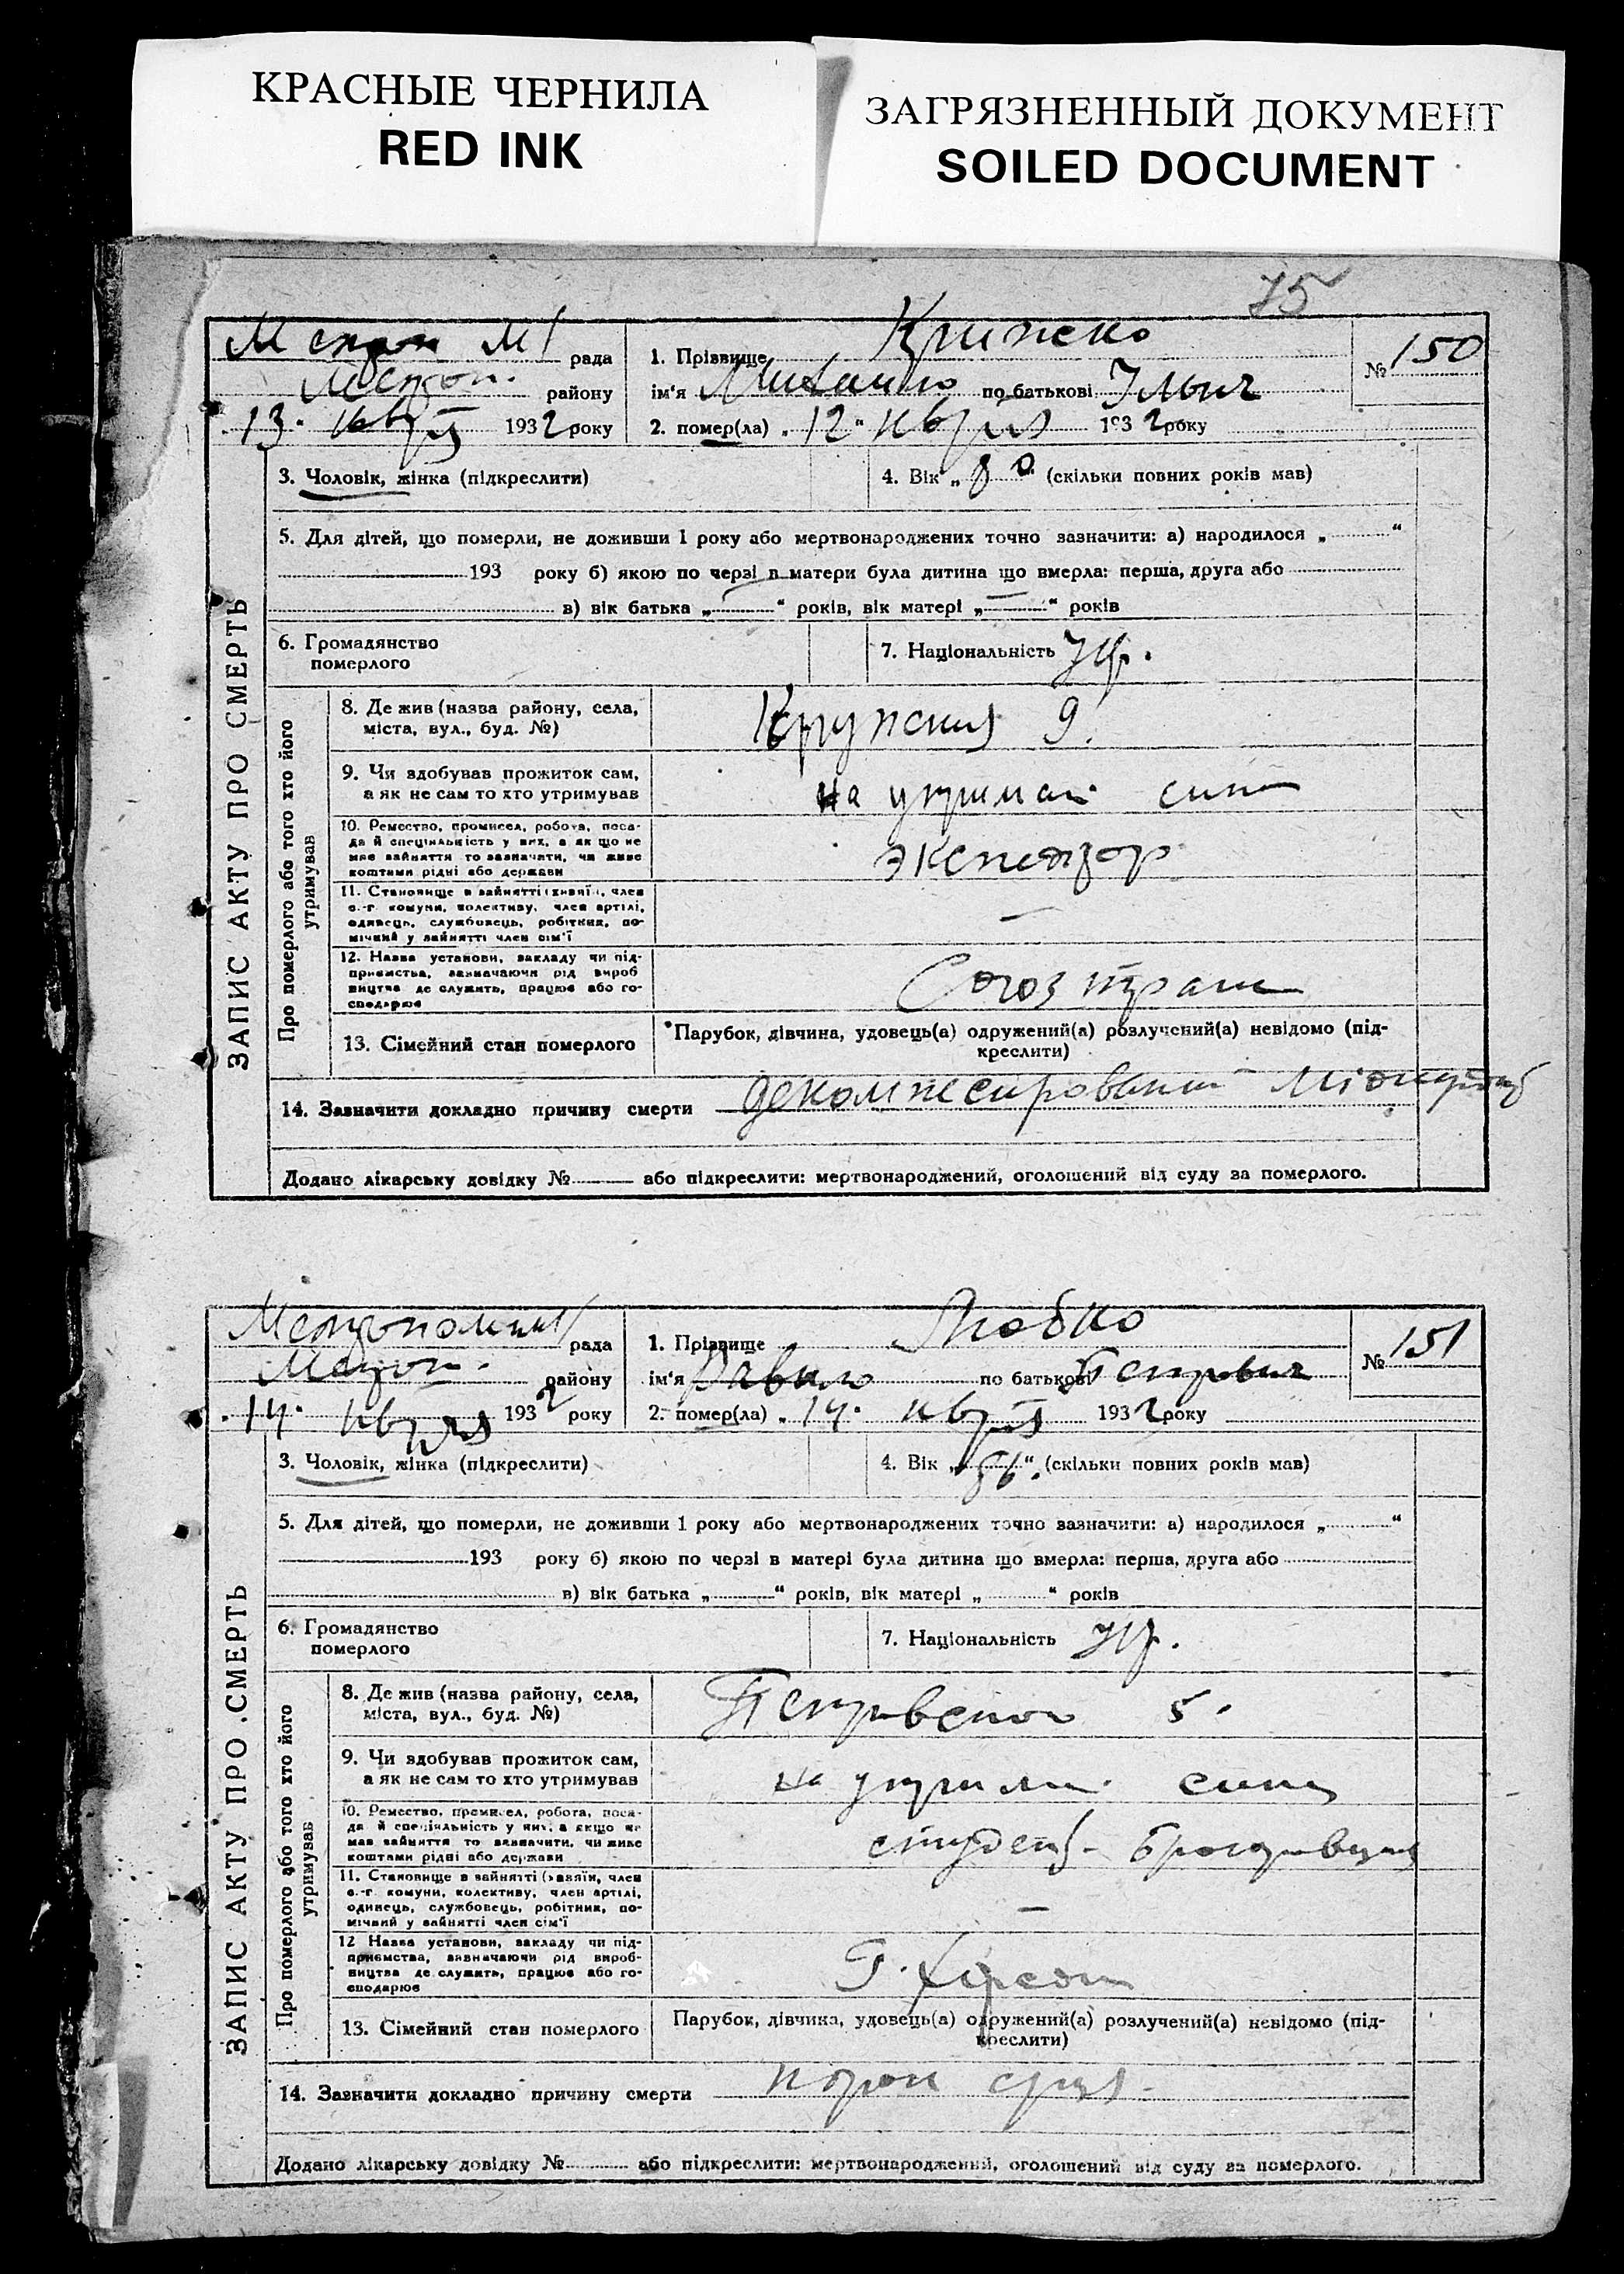 КРАСНЫЕ ЧЕРНИЛА
RED INK
ЗАГРЯЗНЕННЫЙ ДОКУМЕНТ
SOILED DOCUMENT
75
ЗАПИС АКТУ ПРО СМЕРТЬ
рада
району
13 1932 року
1. Прізвище
ім'я Михайло по батькові Ільич
2. помер(ла) „12“ 1932 року
№ 150
3. Чоловік, жінка (підкреслити)
4. Вік „80“ (скільки повних років мав)
5. Для дітей, що померли, не доживши 1 року або мертвонароджених точно зазначити: а) народилося „ “
193 року б) якою по черзі в матери була дитина що вмерла: перша, друга або
в) вік батька „ “ років, вік матері „ “ років
6. Громадянство
померлого
7. Національність Укр.
Про померлого або того хто його
утримував
8. Де жив (назва району, села,
міста, вул., буд. №)
9.
9. Чи здобував прожиток сам,
а як не сам то хто утримував
на утриман сина
10. Ремество, промисел, робота, поса-
да й спеціальність у них, а як що не
мав зайняття то зазначити, чи живе
коштами рідні або держави
11. Становище в зайнятті (хазяїн, член
с.-г. комуни, колективу, член артілі,
одинець, службовець, робітник, по-
мічний у зайнятті член сім'ї
—
12. Назва установи, закладу чи під-
приємства, зазначаючи рід вироб
ництва де служить, працює або го-
сподарює
Союзтранс
13. Сімейний стан померлого
Парубок, дівчина, удовець(а) одружений(а) розлучений(а) невідомо (під-
креслити)
14. Зазначити докладно причину смерти
Додано лікарську довідку № або підкреслити: мертвонароджений, оголошений від суду за померлого.
ЗАПИС АКТУ ПРО СМЕРТЬ
рада
району
14 1932 року
1. Прізвище
ім'я по батькові Петрович
2. помер(ла) „14“ 1932 року
№ 151
3. Чоловік, жінка (підкреслити)
4. Вік „86“ (скільки повних років мав)
5. Для дітей, що померли, не доживши 1 року або мертвонароджених точно зазначити: а) народилося „ “
193 року б) якою по черзі в матері була дитина що вмерла: перша, друга або
в) вік батька „ “ років, вік матері „ “ років
6. Громадянство
померлого
7. Національність Укр.
Про померлого або того хто його
утримував
8. Де жив (назва району, села,
міста, вул., буд. №)
Петровского 5.
9. Чи здобував прожиток сам,
а як не сам то хто утримував
на утриман. сина
10. Ремество, промисел, робота, поса-
да й спеціяльність у них, а якщо не
мав зайняття то зазначити, чи живе
коштами рідні або держави
студент
11. Становище в зайнятті (хазяїн, член
с.-г. комуни, колективу, член артілі,
одинець, службовець, робітник, по-
мічний у зайнятті член сім'ї
—
12 Назва установи, закладу чи під-
приємства, зазначаючи рід вироб-
ництва де служить, працює або го-
сподарює
Г. Херсон
13. Сімейний стан померлого
Парубок, дівчина, удовець(а) одружений(а) розлучений(а) невідомо (під-
креслити)
14. Зазначити докладно причину смерти
Додано лікарську довідку № або підкреслити: мертвонароджений, оголошений від суду за померлого.